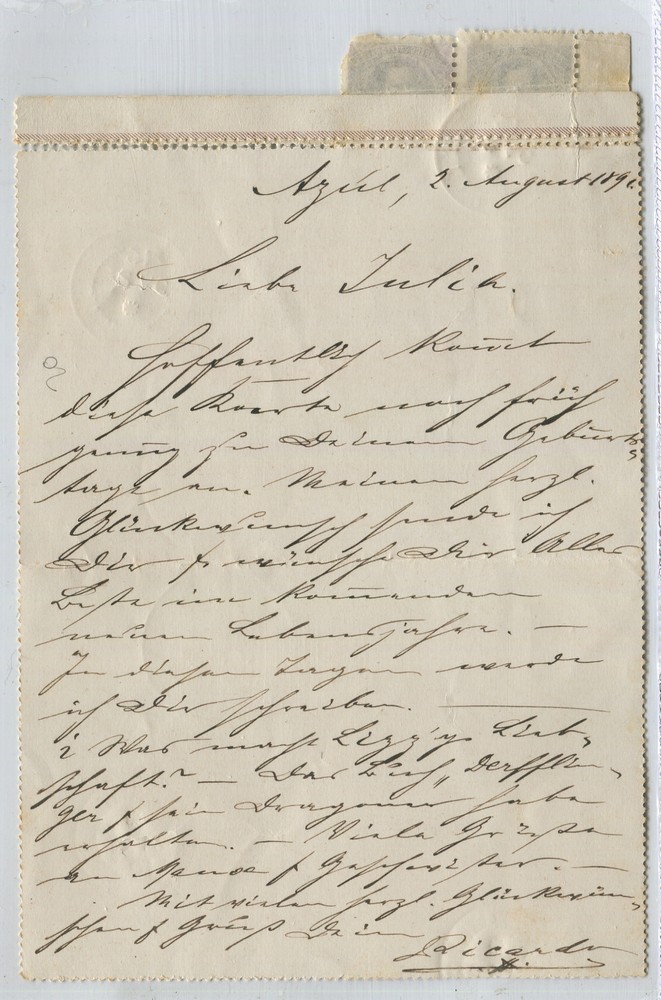 Azúl, 2. August 189
Liebe Julia.
Hoffentlich kom̄t
diese Karte noch früh
genug zu Deinem Geburts-
tage an. Meinen herzl.
Glückwunsch sende ich
Dir & wünsche Dir Alles
Beste im kom̄enden
neuen Lebensjahre. —
In diesen Tagen werde
ich Dir schreiben. —
¿ Was macht Lizzy's Lieb-
schaft? — Das Buch „Derfflin-
ger & sein Dragoner habe
erhalten. — Viele Grüße
an & Geschwister. —
Mit vielen herzl. Glückwün-
schen & Gruß Dein
Ricardo